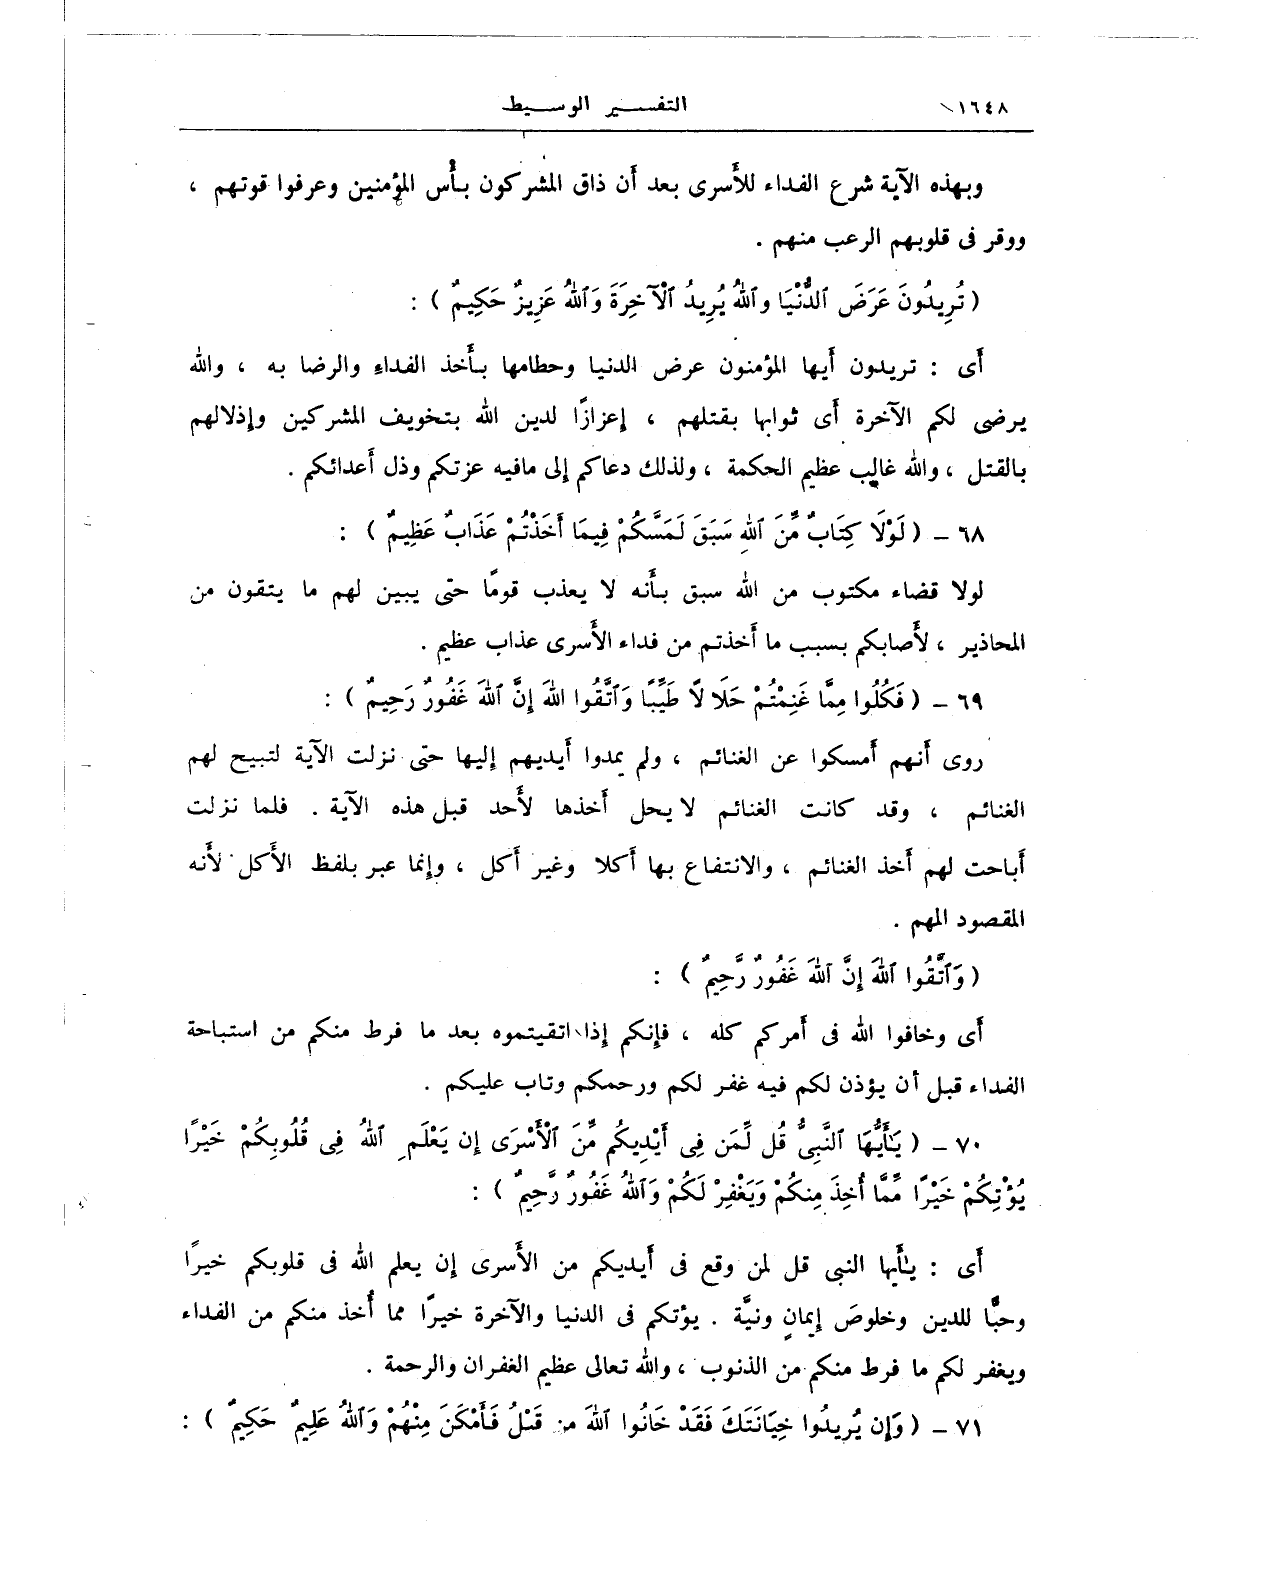 ١٦٤٨ التفسير الوسيط
وبهذه الآية شرع الفداء للأسرى بعد أن ذاق المشركون بأس المؤمنين وعرفوا قوتهم ،
ووقر فى قلوبهم الرعب منهم .
( تُرِيدُونَ عَرَضَ ٱلدُّنْيَا وٱللهُ يُرِيدُ ٱلْآخِرَةَ وَٱللهُ عَزِيزٌ حَكِيمٌ ) :
أى : تريدون أيها المؤمنون عرض الدنيا وحطامها بأخذ الفداء والرضا به ، والله
يرضى لكم الآخرة أى ثوابها بقتلهم ، إعزازًا لدين الله بتخويف المشركين وإذلالهم
بالقتل ، والله غالب عظيم الحكمة ، ولذلك دعاكم إلى مافيه عزتكم وذل أعدائكم .
٦٨ – ( لَوْلَا كِتَابٌ مِّنَ ٱللهِ سَبَقَ لَمَسَّكُمْ فِيمَا أَخَذْتُمْ عَذَابٌ عَظِيمٌ ) :
لولا قضاء مكتوب من الله سبق بأنه لا يعذب قومًا حتى يبين لهم ما يتقون من
المحاذير ، لأصابكم بسبب ما أخذتم من فداء الأسرى عذاب عظيم .
٦٩ – ( فَكُلُوا مِمَّا غَنِمْتُمْ حَلَالًا طَيِّبًا وَٱتَّقُوا اللهَ إِنَّ ٱللهَ غَفُورٌ رَحِيمٌ ) :
روى أنهم أمسكوا عن الغنائم ، ولم يمدوا أيديهم إليها حتى نزلت الآية لتبيح لهم
الغنائم ، وقد كانت الغنائم لا يحل أخذها لأحد قبل هذه الآية . فلما نزلت
أباحت لهم أخذ الغنائم ، والانتفاع بها أكلا وغير أكل ، وإنما عبر بلفظ الأكل لأنه
المقصود المهم .
( وَٱتَّقُوا ٱللهَ إِنَّ ٱللهَ غَفُورٌ رَّحِيمٌ ) :
أى وخافوا الله فى أمركم كله ، فإنكم إذا اتقيتموه بعد ما فرط منكم من استباحة
الفداء قبل أن يؤذن لكم فيه غفر لكم ورحمكم وتاب عليكم .
٧٠ – ( يَٰأَيُّهَا ٱلنَّبِىُّ قُل لِّمَن فِى أَيْدِيكُم مِّنَ ٱلْأَسْرَى إِن يَعْلَمِ ٱللهُ فِى قُلُوبِكُمْ خَيْرًا
يُؤْتِكُمْ خَيْرًا مِّمَّا أُخِذَ مِنكُمْ وَيَغْفِرْ لَكُمْ وَٱللهُ غَفُورٌ رَّحِيمٌ ) :
أى : يٰأيها النبى قل لمن وقع فى أيديكم من الأسرى إن يعلم الله فى قلوبكم خيرًا
وحبًّا للدين وخلوصَ إيمانٍ ونيَّة . يؤتكم فى الدنيا والآخرة خيرًا مما أُخذ منكم من الفداء
ويغفر لكم ما فرط منكم من الذنوب ، والله تعالى عظيم الغفران والرحمة .
٧١ – ( وَإِن يُرِيدُوا خِيَانَتَكَ فَقَدْ خَانُوا ٱللهَ مِن قَبْلُ فَأَمْكَنَ مِنْهُمْ وَٱللهُ عَلِيمٌ حَكِيمٌ ) :